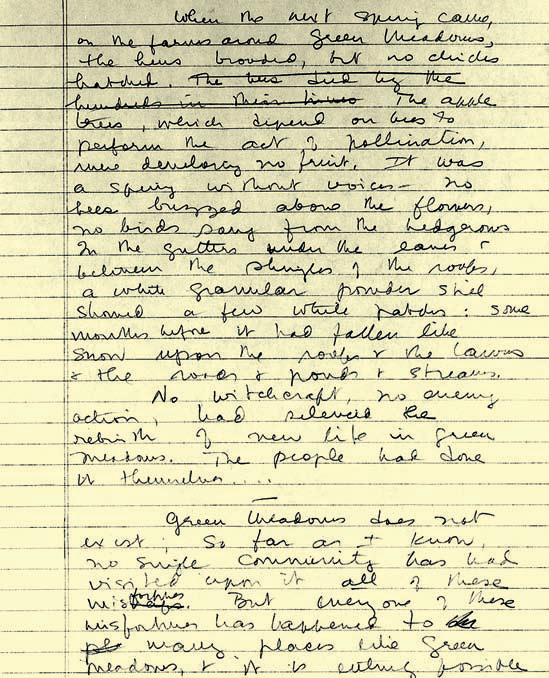 When the next spring came,
on the farms around Green Meadows,
the hens brooded, but no chicks
hatched. The bees died by the
hundreds in their hives The apple
trees, which depend on bees to
perform the act of pollination,
were developing no fruit. It was
a spring without voices - no
bees buzzed above the flowers,
no birds sang from the hedgerows
In the gutters under the eaves &
between the shingles of the roofs,
a white granular powder still
showed a few white patches: some
months before it had fallen like
snow upon the roofs & the lawns
& the roads & ponds & streams.
No witchcraft, no enemy
action, had silenced the
rebirth of new life in Green
Meadows. The people had done
it themselves....
Green Meadows does not
exist; So far as I know,
no single community has had
visited upon it all of these
misfortunes. But every one of these
misfortunes has happened to
many places like Green
Meadows, & it is entirely possible